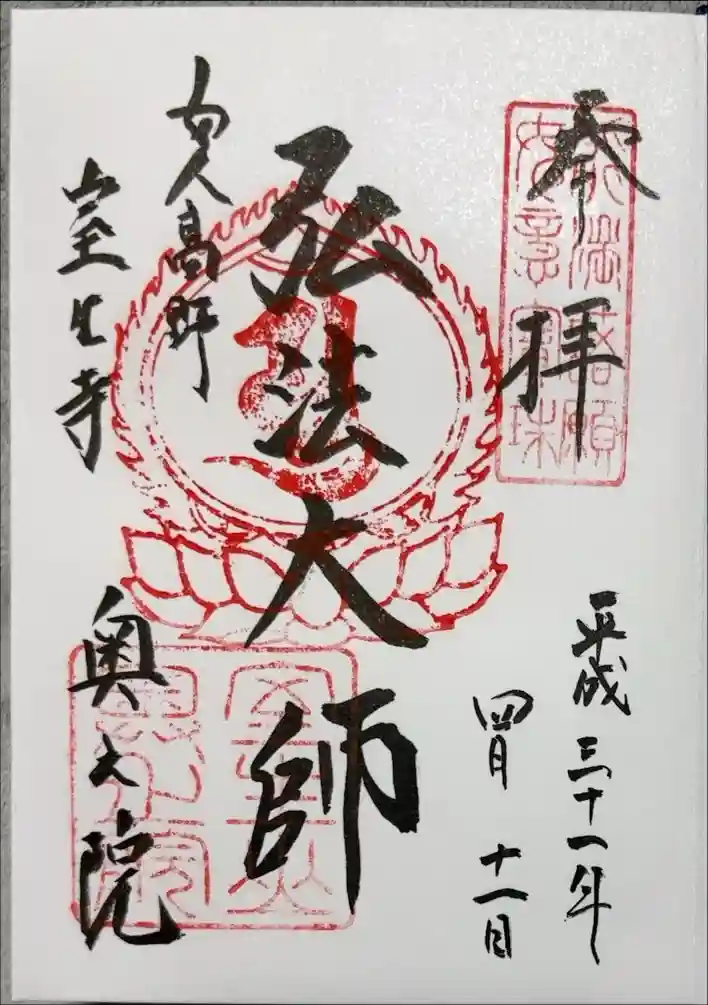 奉拝
平成三十一年
四月十一日
弘法大師
女人高野
室生寺
奥之院
如意宝珠